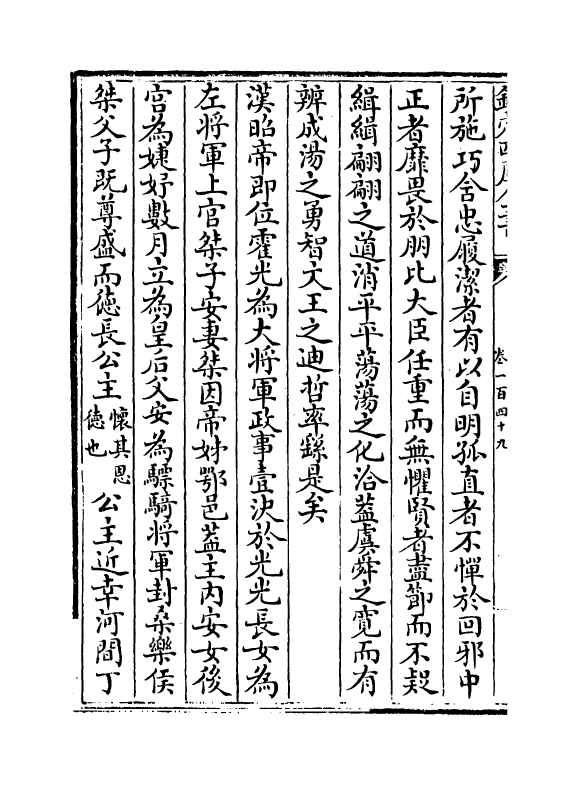 欽定四庫全書
卷一百四十九
所施巧舍忠履潔者有以自明孤直者不憚於回邪中
正者靡畏於朋比大臣任重而無懼賢者盡節而不疑
緝緝翩翩之道消平平蕩蕩之化洽蓋虞舜之寛而有
辨成湯之勇智文王之迪哲率繇是矣
漢昭帝即位霍光為大將軍政事壹決於光光長女為
左將軍上官桀子安妻桀因帝姊鄂邑蓋主内安女後
宮為婕妤數月立為皇后父安為驃騎將軍封桑樂侯
桀父子既尊盛而徳長公主懐其恩徳也公主近幸河間丁